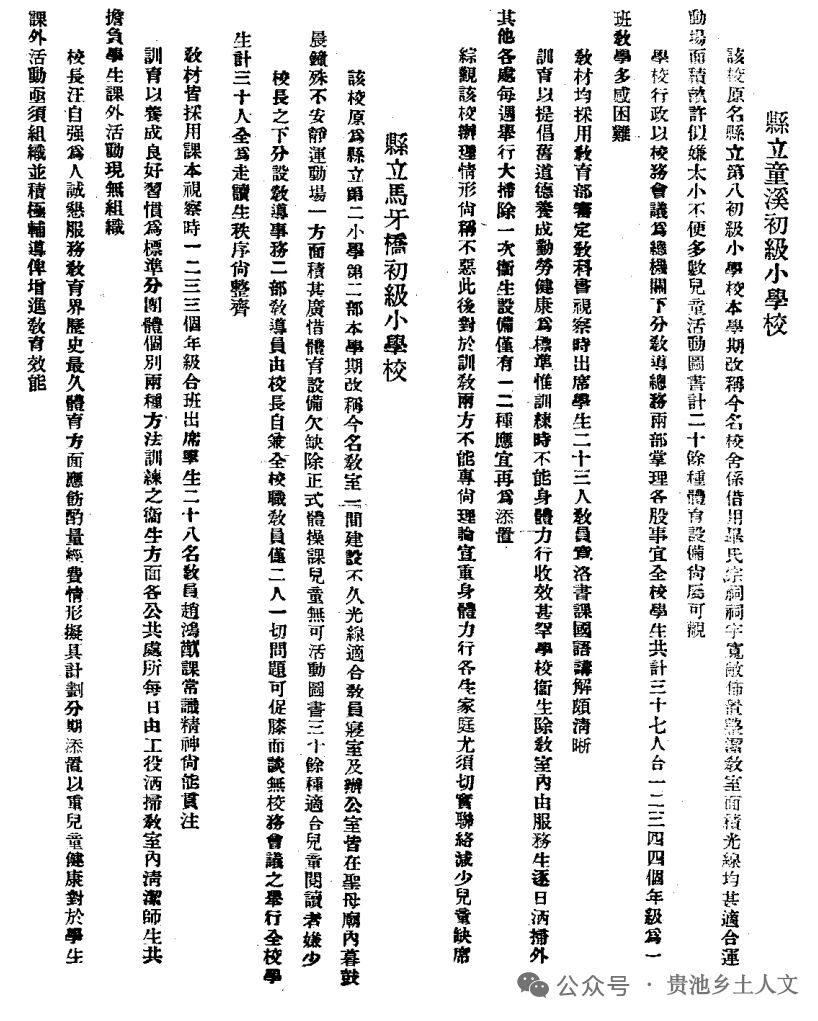 縣立童溪初級小學校
該校原名縣立第八初級小學校本學期改稱今名校舍係借用畢氏宗祠祠宇寬敞佈置整潔教室面積光線均甚適合運
動場面積軟許似嫌太小不便多數兒童活動圖書計二十餘種體育設備尙屬可觀
學校行政以校務會議爲總機關下分敎導總務兩部掌理各股事宜全校學生共計三十七人合一二三四四個年級爲一
班敎學多感困難
敎材均採用敎育部審定敎科書視察時出席學生二十三人敎員章洛書課國語講解頗清晰
訓育以提倡舊道德養成勤勞健康爲標準惟訓練時不能身體力行收效甚罕學校衞生除敎室內由服務生逐日洒掃外
其他各處每週舉行大掃除一次衞生設備僅有一二種應宜再爲添置
綜觀該校辦理情形尙稱不惡此後對於訓敎兩方不能專尙理論宜重身體力行各生家庭尤須切實聯絡減少兒童缺席
縣立馬牙橋初級小學校
該校原爲縣立第二小學第二部本學期改稱今名敎室一間建設不久光線適合敎員寢室及辦公室皆在聖母廟內暮鼓
晨鐘殊不安靜運動場一方面積甚廣惜體育設備欠缺除正式體操課兒童無可活動圖書三十餘種適合兒童閱讀者嫌少
校長之下分設敎導事務二部敎導員由校長自兼全校職敎員僅二人一切問題可促膝而談無校務會議之舉行全校學
生計三十人全爲走讀生秩序尙整齊
敎材皆採用課本視察時一二三三個年級合班出席學生二十八名敎員趙鴻猷課常識精神尙能貫注
訓育以養成良好習慣爲標準分團體個別兩種方法訓練之衞生方面各公共處所每日由工役洒掃敎室內淸潔師生共
擔負學生課外活動現無組織
校長汪自强爲人誠懇服務敎育界歷史最久體育方面應飭酌量經費情形擬具計劃分期添置以重兒童健康對於學生
課外活動亟須組織並積極輔導俾增進敎育效能
公众号 · 贵池乡土人文